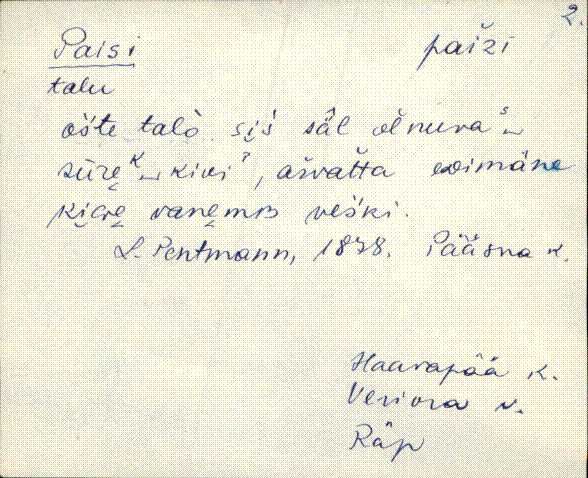 2.
Paisi paiži
talu
ošte talo. siis säl olnuva s
sūre k kivi ?, arvatta esimäne
kige vanemb veški.
L. Pentmann, 1878. Pääsna k.
Haavapää k.
Veriora v.
Räp